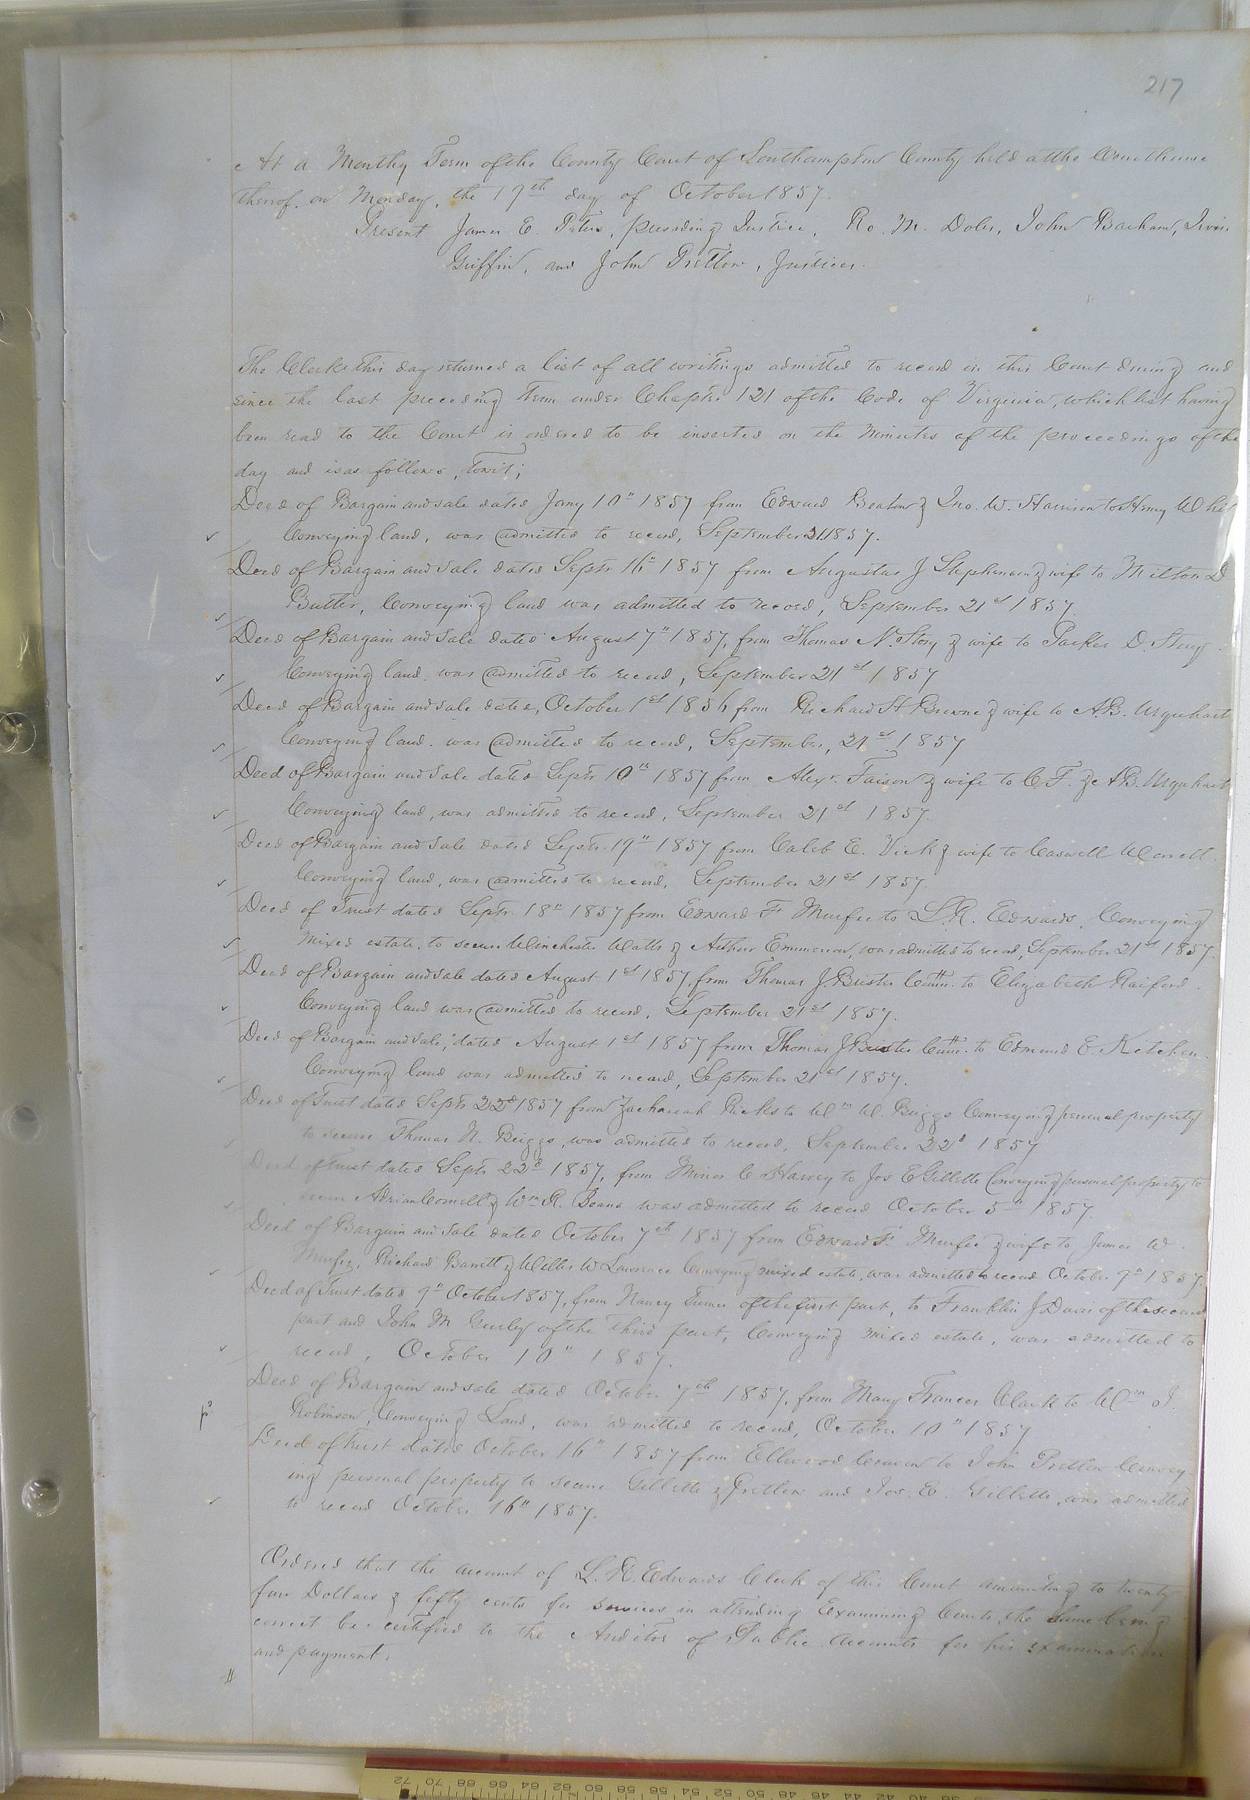 217
At a Monthly Term of the County Court of Southampton County held at the Courthouse
thereof, on Monday, the 19th day of October 1857.
Present James E. Peters, presiding Justice, Ro. M. Doles, John Barham,
Griffin, and John Pretlow, Justices.
The Clerk this day returned a list of all writings admitted to record in this Court during and
since the last preceding Term under Chapter 121 of the Code of Virginia, which list having
been read to the Court is ordered to be inserted on the minutes of the proceedings of the
day and is as follows, towit;
Deed of Bargain and sale dated Jany 10" 1857 from Edward Beaton & Jno. W. Harrison to Henry
Conveying land, was admitted to record, September 21 1857.
Deed of Bargain and sale dated Septr 16" 1857 from Augustus J Stephenson & wife to Milton D
Butler, Conveying land was admitted to record, September 21st 1857.
Deed of Bargain and sale dated August 7" 1857, from Thomas N. Story & wife to Parker D. Story
Conveying land, was admitted to record, September 21st 1857
Deed of Bargain and sale dated, October 1st 1856 from Richard H Browne & wife to A.B. Urquhart
Conveying land, was admitted to record, September, 21st 1857
Deed of Bargain and Sale dated Septr 10th 1857 from Alexr. Faison & wife to C F. & A B. Urquhart
Conveying land, was admitted to record, September 21st 1857.
Deed of Bargain and Sale dated Septr. 19" 1857 from Caleb E. Vick & wife to Caswell Worrell
Conveying land, was admitted to record, September 21st 1857.
Deed of Trust dated Septr. 18" 1857 from Edward F Murfee to L.R. Edwards, Conveying
mixed estate, to secure Winchester Watts & Arthur Emmerson, was admitted to record, September 21st 1857.
Deed of Bargain and sale dated August 1st 1857, from Thomas J. Brister Comr. to Elizabeth Raiford.
Conveying land was admitted to record, September 21st 1857.
Deed of Bargain and sale, dated August 1st 1857 from Thomas J Brister Comr. to Edmund E. Kitchen
Conveying land was admitted to record, September 21st 1857.
Deed of Trust dated Septr 22d 1857 from Zachariah Ricks to Wm W. Briggs Conveying personal property
to secure Thomas N. Briggs, was admitted to record, September 22d 1857
Deed of Trust dated Septr 22d 1857, from Minor C Harvey to Jos E Gillette Conveying personal property to
secure Adrian Cornell & Wm R. Beans was admitted to record October 5th 1857.
Deed of Bargain and Sale dated October 7th 1857 from Edward F. Murfee & wife to James W.
Murfee, Richard Barrett & Willis W Lawrence Conveying mixed estate, was admitted to record October 9" 1857.
Deed of Trust dated 9" October 1857, from Nancy Turner of the first part, to Franklin J Davis of the second
part and John M Gurley of the third part, Conveying mixed estate, was admitted to
record, October 10" 1857.
Deed of Bargain and sale dated October 7th 1857, from Mary Frances Clark to Wm J.
Robinson, Conveying Land, was admitted to record, October 10" 1857
Deed of Trust dated October 16" 1857 from Ellwood to John Pretlow Convey
ing personal property to secure Gillette & Pretlow and Jos. E. Gillette, was admitted
to record October 16" 1857.
Ordered that the account of L. R. Edwards Clerk of this Court amounting to twenty
four Dollars & fifty cents for Services in attending Examining Courts, the same being
correct be certified to the Auditor of Public Accounts for his examination
and payment.